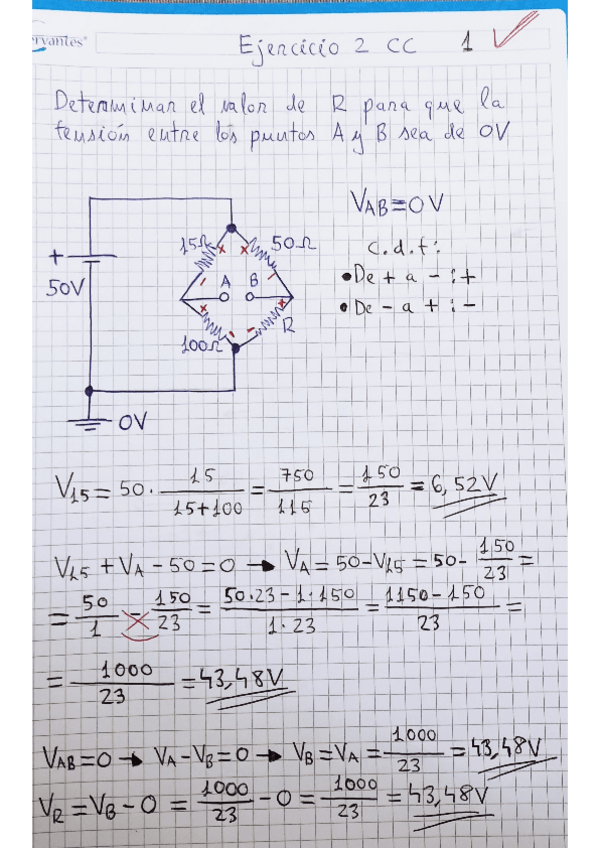 ervantes®
Ejercicio 2 CC 1
Determinar el valor de R para que la
tensión entre los puntos A y B sea de 0V
V_AB=0V
c.d.t:
• De + a - : +
• De - a + : -
+
50V
15Ω
50Ω
A B
100Ω
R
0V
V₁₅ = 50 · 15/(15+100) = 750/115 = 150/23 = 6,52V
V₁₅ + V_A - 50 = 0 → V_A = 50 - V₁₅ = 50 - 150/23 =
= 50/1 - 150/23 = (50·23 - 1·150)/(1·23) = (1150-150)/23 =
= 1000/23 = 43,48V
V_AB = 0 → V_A - V_B = 0 → V_B = V_A = 1000/23 = 43,48V
V_R = V_B - 0 = 1000/23 - 0 = 1000/23 = 43,48V